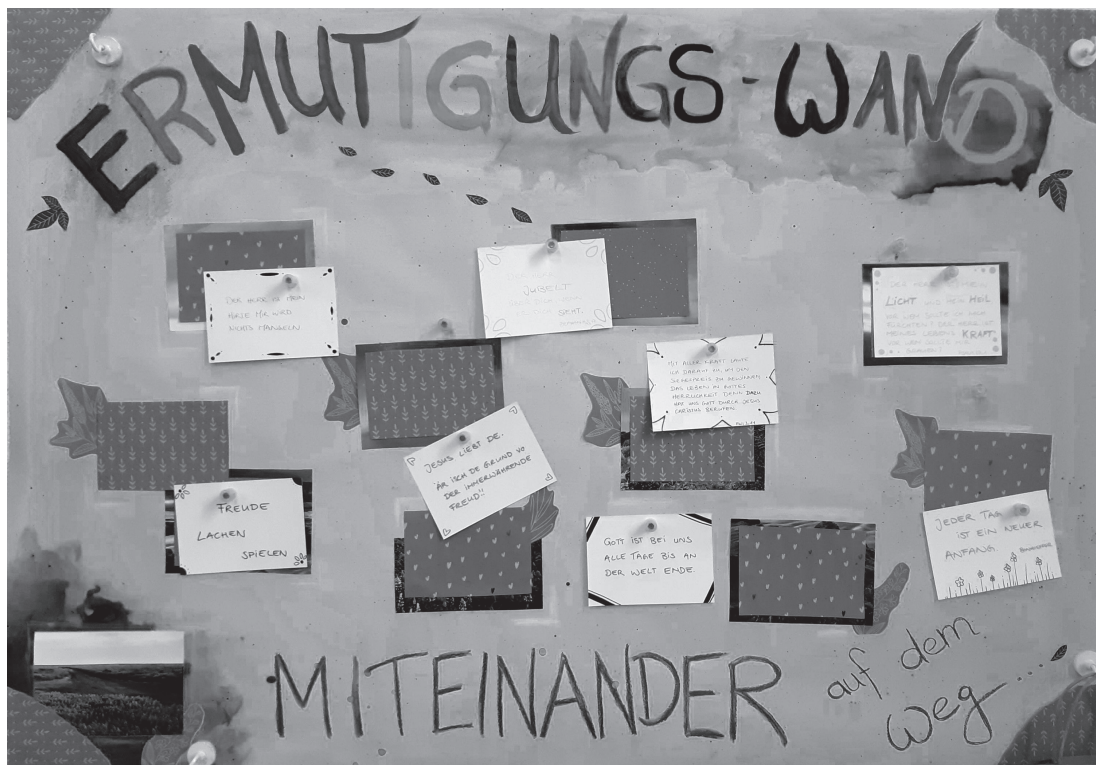 ERMUTIGUNGS-WAND
DER HERR IST MEIN
HIRTE MIR WIRD
NICHTS MANGELN
JUBELT
SEHT.
DER HERR IST MEIN
LICHT UND MEIN HEIL
VOR WEM SOLLTE ICH MICH
FÜRCHTEN? DER HERR IST
MEINES LEBENS KRAFT
VOR WEM SOLLTE MIR
MIT ALLER KRAFT LAUFE
ICH DARAUF ZU, UM DEN
SIEGESPREIS ZU GEWINNEN
DAS LEBEN IN GOTTES
HERRLICHKEIT DENN DAZU
HAT UNS GOTT DURCH JESUS
CHRISTUS BERUFEN.
JESUS LIEBT DE.
ÄR ISCH DE GRUND VO
DER IMMERWÄHRENDE
FREUD!!
FREUDE
LACHEN
SPIELEN
GOTT IST BEI UNS
ALLE TAGE BIS AN
DER WELT ENDE.
JEDER TAG
IST EIN NEUER
ANFANG.
MITEINANDER
auf dem
weg....